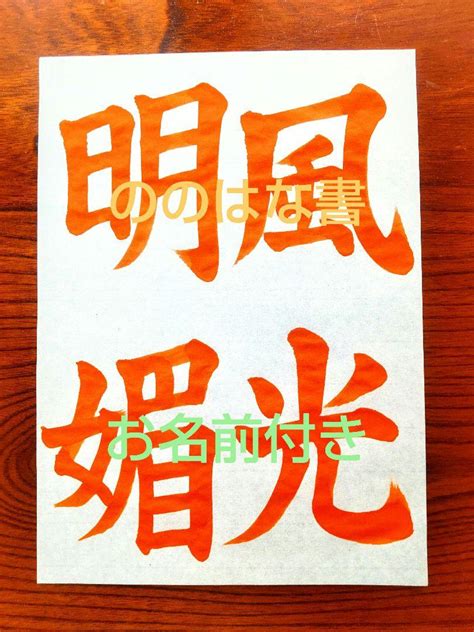 風光
明媚
ののはな書
お名前付き